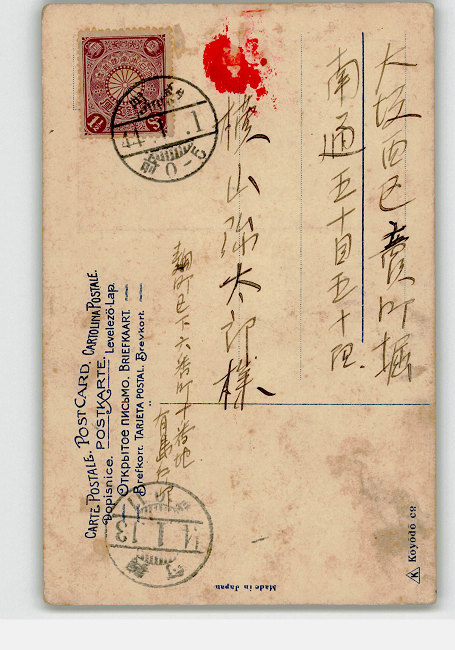 大阪西区立賣町堀
南通五十目五十四
横山弥太郎様
麹町区下六番町十番地
有島
CARTE POSTALE. POST CARD. CARTOLINA POSTALE.
Dopisnice. POSTKARTE. Levelező-Lap.
Открытое письмо. BRIEFKAART.
Brefkort. TARJETA POSTAL. Brevkort.
1½ Sn
44.1.1
前0-5
44.1.13
Made in Japan
K Koyodo C8